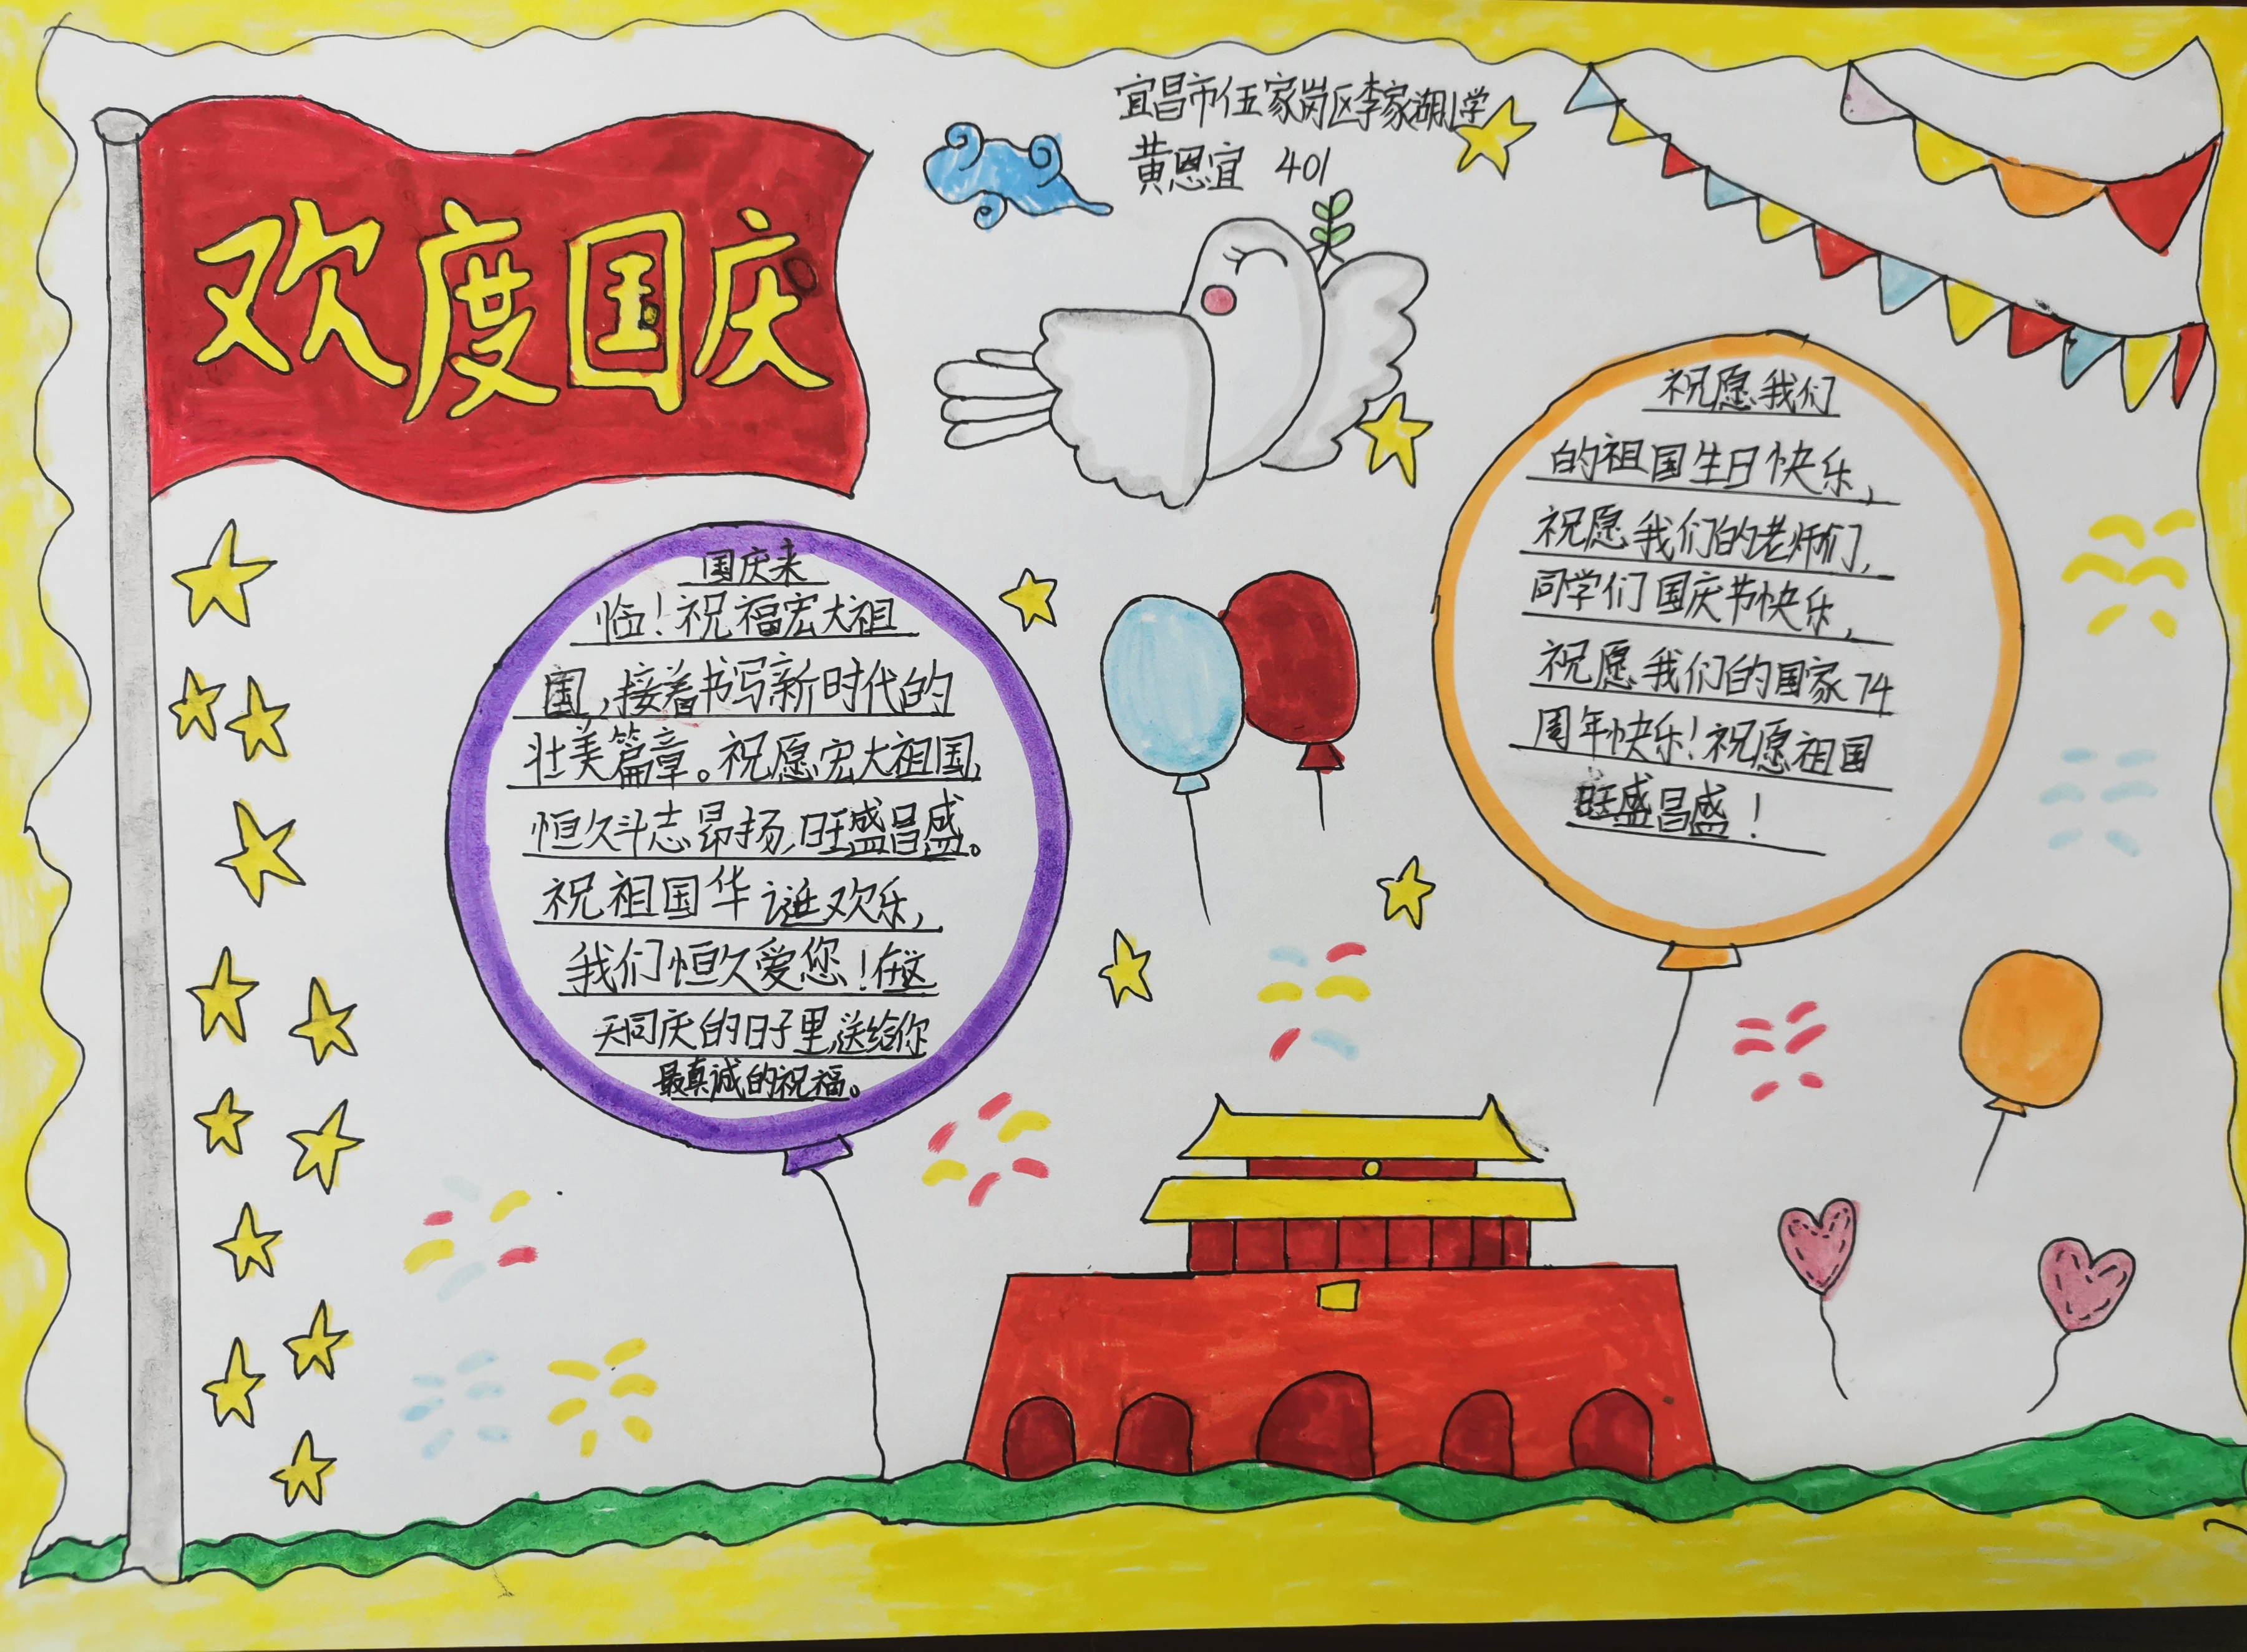 欢度国庆
宜昌市伍家岗区李家湖小学
黄恩宜 401
国庆来
临！祝福宏大祖
国,接着书写新时代的
壮美篇章。祝愿宏大祖国,
恒久斗志昂扬,旺盛昌盛。
祝祖国华诞欢乐,
我们恒久爱您！在这
天同庆的日子里,送给你
最真诚的祝福。
祝愿我们
的祖国生日快乐,
祝愿我们的老师们,
同学们国庆节快乐,
祝愿我们的国家74
周年快乐！祝愿祖国
旺盛昌盛！